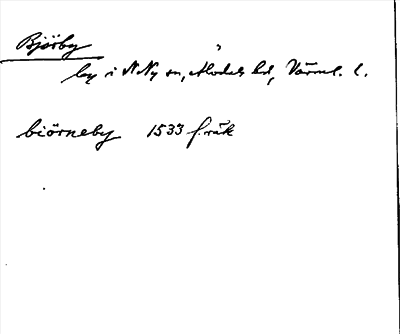 Björby
by i N Ny sn, Älvdals hd, Värml. l.
biörneby 1533 f.räk